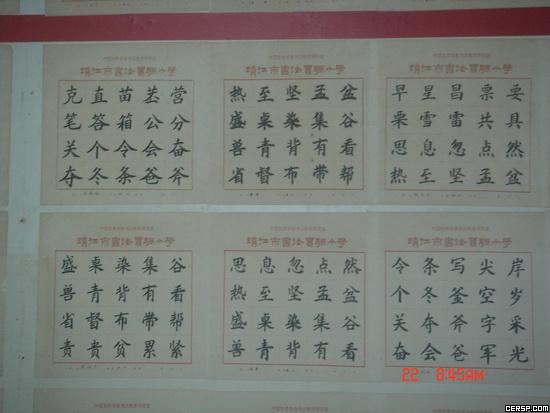 靖江市書法實驗小學
克直苗茎营
笔答箱公分
关个令会奋
夺冬条爸斧
靖江市書法實驗小學
热至坚孟盆
盛桌染集谷
兽青背有看
省督布带帮
靖江市書法實驗小學
早星昌票要
栗雪雷共具
思息忽点然
热至坚孟盆
靖江市書法實驗小學
盛桌染集谷
兽青背有看
省督布带帮
责贵贫累紧
靖江市書法實驗小學
思息忽点然
热至坚孟盆
盛桌染集谷
兽青背有看
靖江市書法實驗小學
令条写尖岸
个冬釜空岁
关夺斧字采
奋会爸军光
22 8:45AM
CERSP.COM